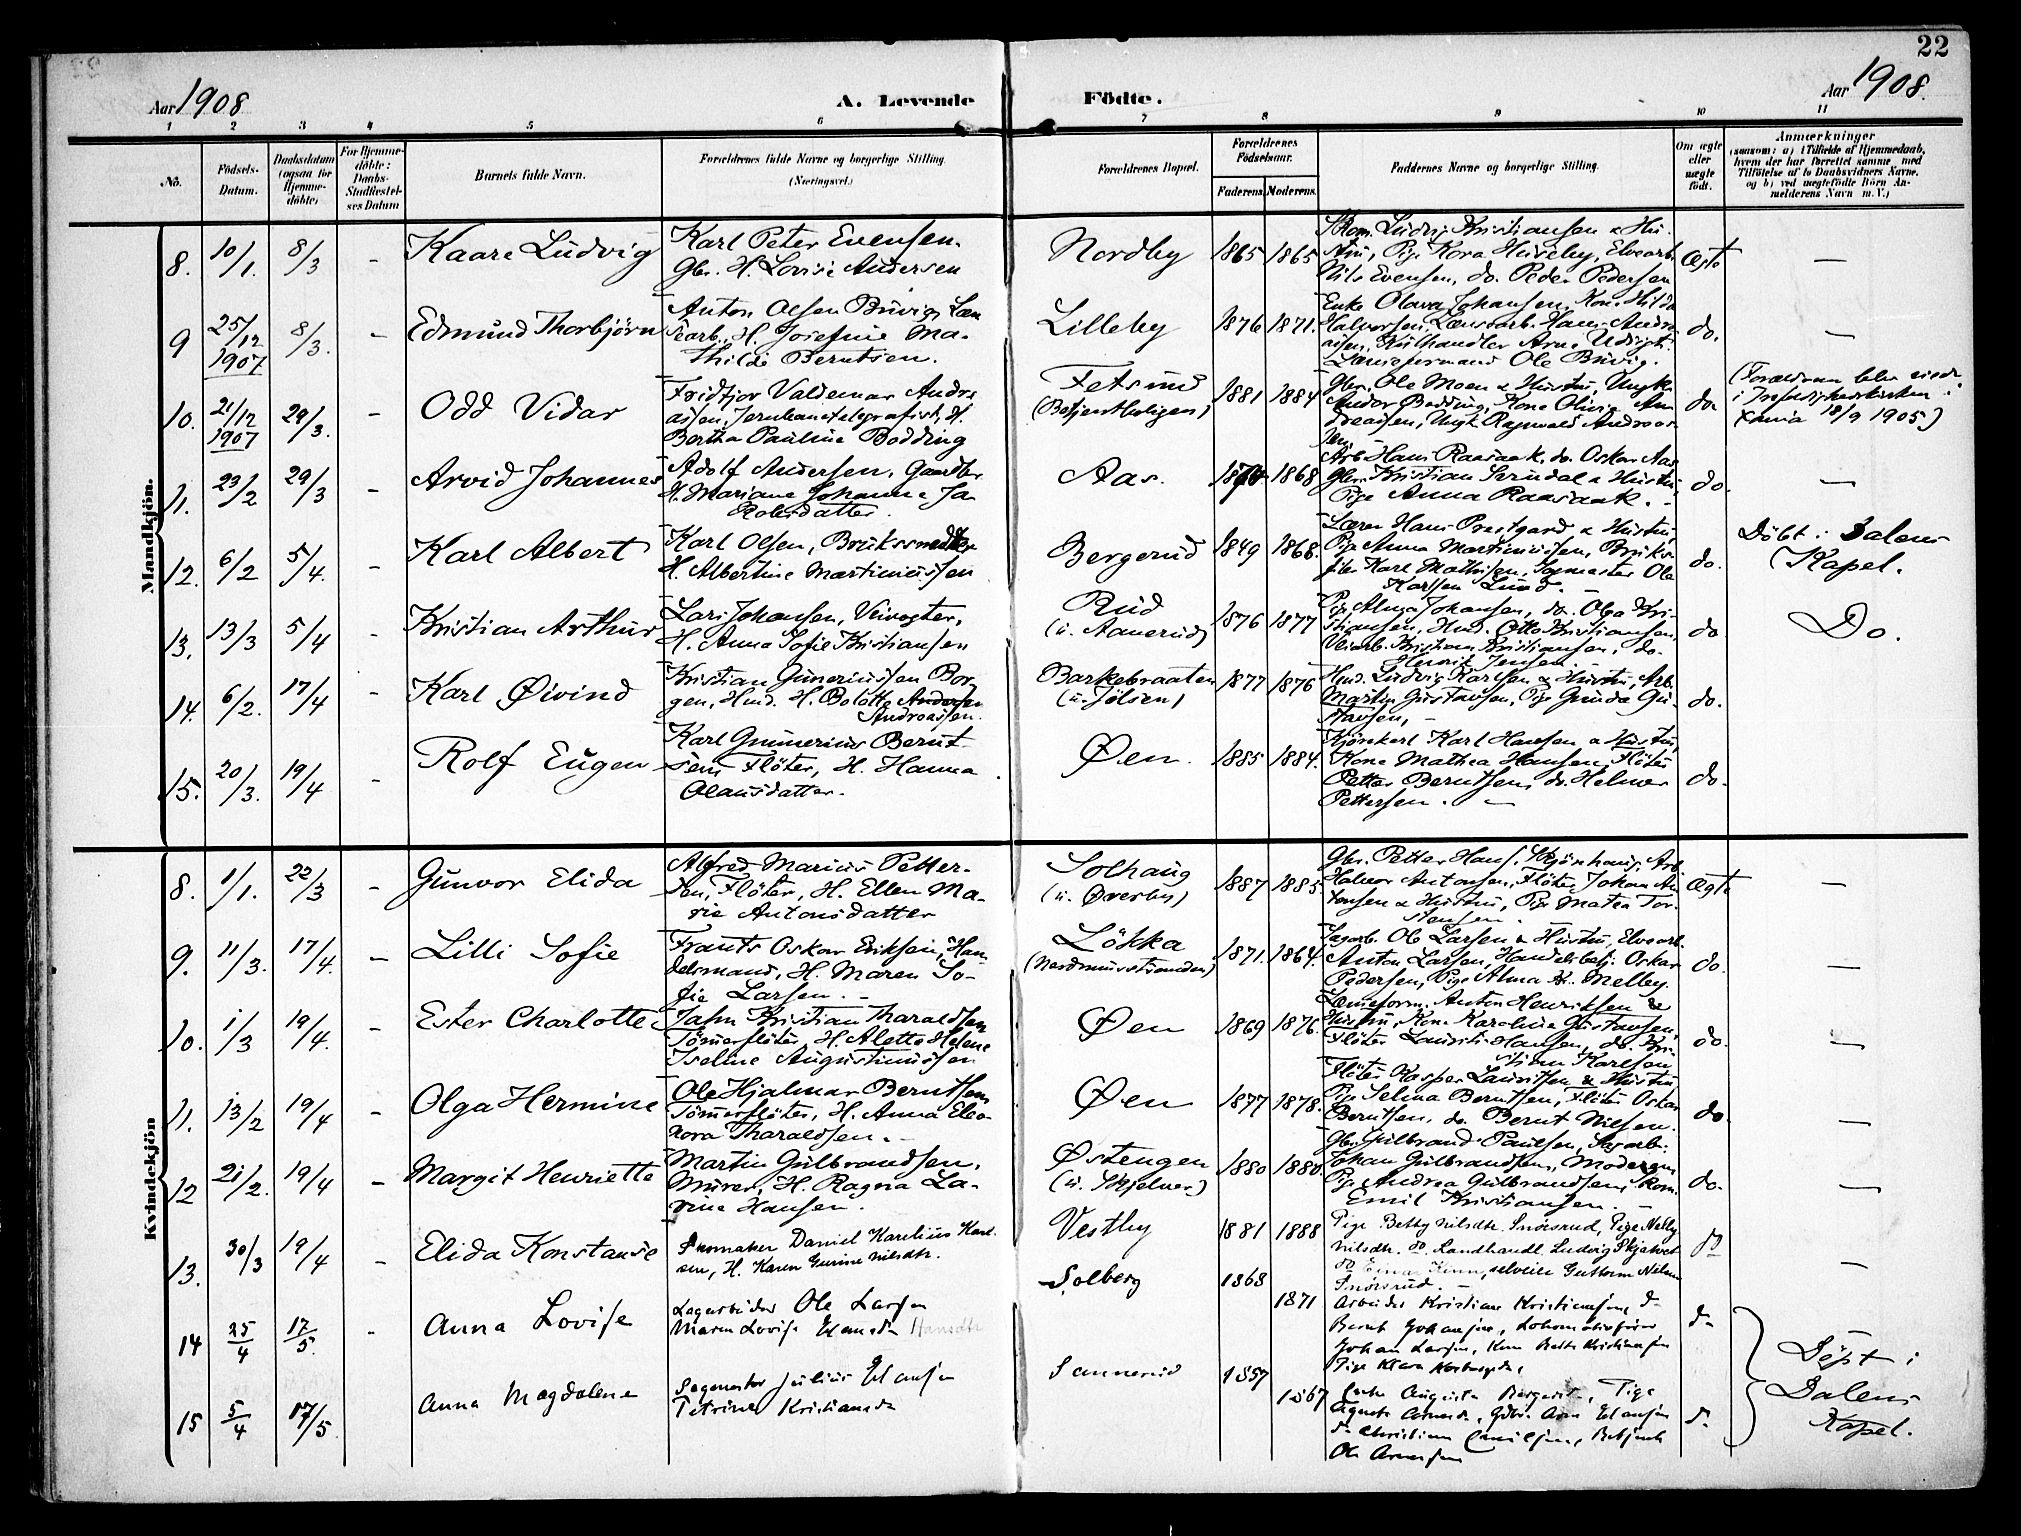 22
Aar 1908
A. Levende
Födte.
Aar 1908.
1 2 3 4 5 6 7 8 9 10 11
No.
Födsels-
Datum.
Daabsdatum
(ogsaa for
Hjemme-
döbte)
For Hjemme-
döbte:
Daabs-
Stadfæstel-
ses Datum
Barnets fulde Navn.
Forældrenes fulde Navne og borgerlige Stilling.
(Næringsvei.)
Forældrenes Bopæl.
Forældrenes
Födselsaar.
Faderens. Moderens.
Faddernes Navne og borgerlige Stilling.
Om ægte
eller
uægte
födt.
Anmærkninger
(saasom: a) i Tilfælde af Hjemmedaab,
hvem der har forrettet samme, med
Tilföielse af to Daabsvidners Navne,
og b) ved uægtefödte Börn An-
melderens Navn m. V.)
Mandkjön.
8. 10/1. 8/3 - Kaare Ludvig
Karl Peter Evensen.
Gbr. H. Lovise Andersen
Nordby 1865 1865
Ludvig Kristiansen & Hu-
stru, Pige Kora Huseby, Elvearb.
Nils Evensen, do. Peder Pedersen
Ægte —
9 25/12 1907 8/3. - Edmund Thorbjörn
Anton Olsen Buvig, Læn-
searb., H. Josefine Ma-
thilde Berntsen.
Lilleby 1876 1871.
Enke Olava Johansen, Kone Hilda
Halvorsen, Lænsearb. Hans Andre-
assen, Kulhandler Arne
Lænseformand Ole Buvig.
do. —
10. 21/12 1907 29/3. - Odd Vidar
Fridtjov Valdemar Andre-
assen, Jernbanetelegrafist, H.
Bertha Pauline Bodding
Fetsund
(Betjentboligen)
1881 1884
Gbr. Ole Moen & Hustru, Ungk.
Andor Bodding, Kone Olivia An-
dreassen, Ungk. Ragnvald Andreas-
sen.
do.
(Forældrene blev viede
i
Xania 18/9 1905.)
11. 23/2 29/3 - Arvid Johannes
Adolf Andersen, Gaardbr.
H. Mariane Johanne Ja-
kobsdatter.
Aas. 1868
Arb. Hans Raasaak, do. Oskar Aas
Gbr. Kristian Svindal & Hustru,
Pige Anna Raasaak. -
do. —
12. 6/2 5/4. - Karl Albert
Karl Olsen, Brukssmed
H. Albertine Martiniussen
Bergerud 1849 1868.
Lærer Hans Prestgard & Hustru,
Pige Anna Martiniussen, Bruks-
Karl Mathisen, Sagmester Ole
Karlsen Lund. -
do.
Döbt i Dalens
Kapel.
13. 13/3 5/4 - Kristian Arthur
Lars Johansen, Veivogter,
H. Anna Sofie Kristiansen
Rud
(u. Aanerud)
1876 1877
Pige Alma Johansen, do. Olga Kri-
stiansen, Hmd. Otto Kristiansen,
Veiarb. Kristian Kristiansen, do.
Henrik Jensen
do. Do.
14. 6/2. 17/4 - Karl Øivind
Kristian Guneriussen Bor-
gen, Hmd. H. Bolette Andersen
Andreassen.
Barkebraaten
(u. Jølsen)
1877 1876
Hmd. Ludvig Karlsen & Hustru, Arb.
Martin Gustavsen, Pige Gunda Gu-
stavsen, -
do.
15. 20/3. 19/4 - Rolf Eugen
Karl Gunnerius Bernt-
sen Flöter, H. Hanna
Olausdatter.
Øen. 1885 1884.
Kjörekarl Karl Hansen & Hustru,
Kone Mathea Hansen, Flöter
Petter Berntsen, do. Helmer
Pettersen. -
do.
Kvindekjön
8. 1/1. 22/3 - Gunvor Elida
Alfred Marius Petter-
sen, Flöter, H. Ellen Ma-
rie Antonsdatter
Solhaug
(u. Overby)
1887 1885.
Gbr. Petter Hans. Skjönhaug, Arb.
Halvor Antonsen, Flöter Johan An-
tonsen & Hustru, Pige Matea Tor-
stensen.
Ægte —
9. 11/3. 17/4. - Lilli Sofie
Frants Oskar Eriksen, Han-
delsmand, H. Maren So-
fie Larsen. -
Lökka
1871. 1864.
Sagarb. Ole Larsen & Hustru, Elvearb.
Anton Larsen, Handelsbetj. Oskar
Pedersen, Pige Alma K. Melby.
do. —
10. 1/3 19/4. - Ester Charlotte
Jahn Kristian Tharaldsen
Tömmerflöter, H. Alette Helene
Iseline Augustinussen
Øen 1869 1876.
Lænseform. Anton Henriksen &
Hustru, Kone Karoline Gustavsen,
Flöter Laurits Hansen, do. Kri-
stian Karlsen
do. —
11. 13/2 19/4 - Olga Hermine
Ole Hjalmar Berntsen,
Tömmerflöter, H. Anna Eleo-
nora Tharaldsen. -
Øen 1877 1878.
Flöter Kasper Lauritsen & Hustru,
Pige Selma Berntsen, Flöter Oskar
Berntsen, do. Bernt Nilsen.
do. —
12 21/2. 19/4 - Margit Henriette
Martin Gulbrandsen,
Murer, H. Ragna La-
vine Hansen.
Østengen
(u. Skjelver)
1880 1880.
Gbr. Gulbrand Paulsen, Sagarb.
Johan Gulbrandsen, Moderen
Pige Andrea Gulbrandsen, Kom.
Emil Kristiansen. -
do. —
13. 30/3 19/4 - Elida Konstanse
Skomaker Daniel Karelius Karl-
sen, H. Karen Gurine Nilsdtr.
Vestby 1881 1888
Pige Betty Nilsdtr. Snörsrud, Pige Nelly
Nilsdtr. do. Landhandl. Ludvig Skjelver
do selveier Guttorm Nilsen
Snörsrud. -
do —
14 25/4 17/5. - Anna Lovise
Sagarbeider Ole Larsen
Maren Lovise Hansdtr
Solberg 1868 1871
Arbeider Kristian Kristiansen, do
Bernt Johansen, Lokomotivförer
Johan Larsen, Kone Kristiansen
Pige Klara
do
15 5/4 17/5. Anna Magdalene
Sagmester Julius
Petrine Kristiansdtr
Sannerud 1857 1867
Enke Augusta Pige
Agnete
do Christian Betjent
Ole Arnesen
do
Döpt i
Dalens
Kapel.